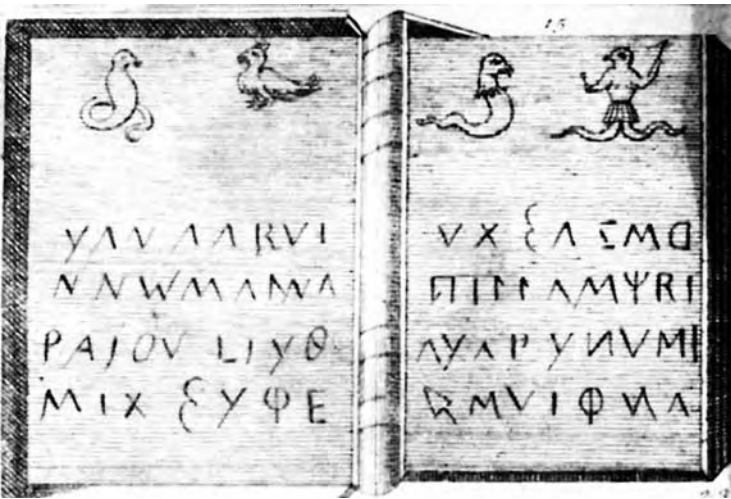 15
ΥΛV ΛΛRVI
NNWMΛMΛ
PAJOV LIYΘ
MIX ξYΦE
VX ξΛΣMD
ΠIΓI ΛMΨRI
ΛYΛP YИVMI
MVIΦИΛ